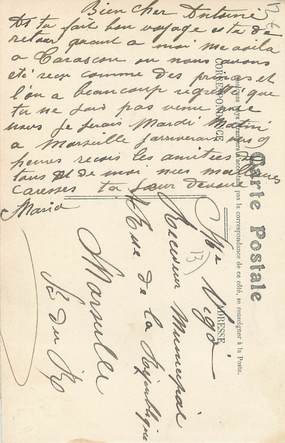 Bien cher Antoine
As tu fait bon voyage et ta de
retour quant a moi me voila
a Tarascon ou nous avons
été reçu comme des princes et
l'on a beaucoup regretté que
tu ne sois pas venu avec
nous je serais Mardi Matin
a Marseille j'arriverais vers 9
heures recois les amitiés de
tous et de moi mes meilleures
caresses ta sœur devouée
Maria
Carte Postale
CORRESPONDANCE
ADRESSE
la correspondance de ce côté, se renseigner à la Poste.
Mr
Receveur Municipal
13
Rue de la République
Marseille
Bes du R.